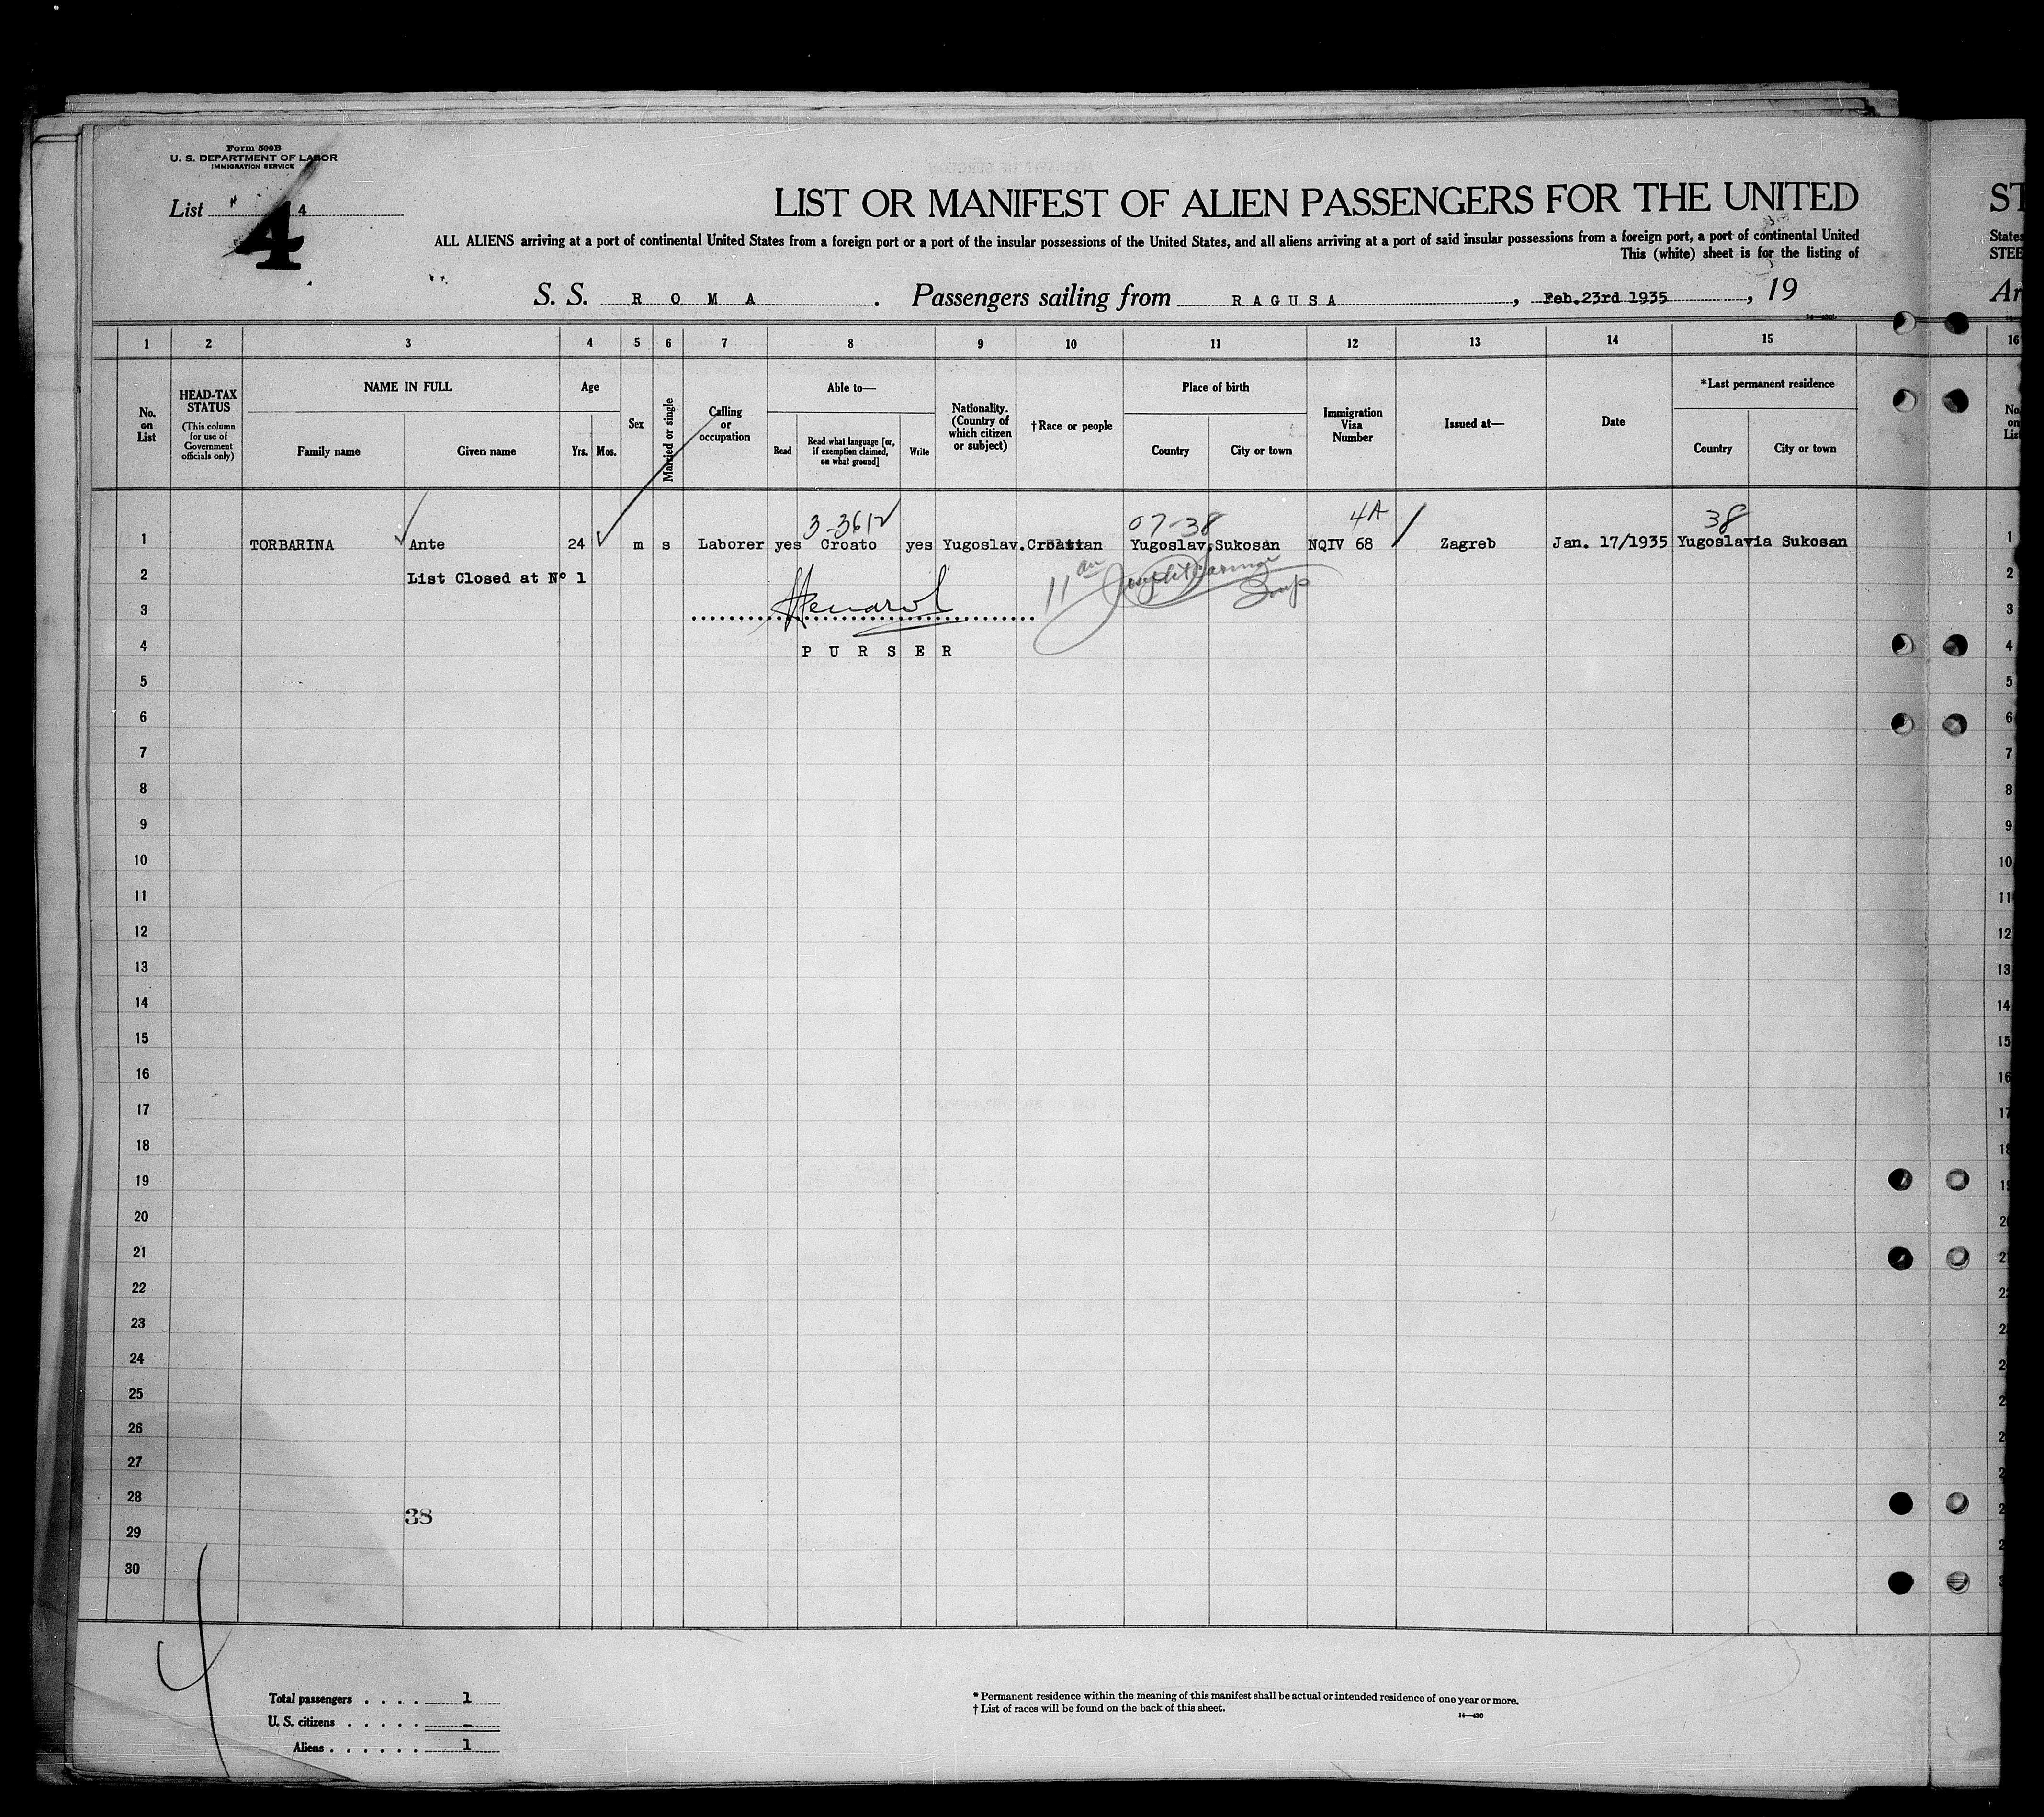 Form 500B
U. S. DEPARTMENT OF LABOR
IMMIGRATION SERVICE
List 4
4
LIST OR MANIFEST OF ALIEN PASSENGERS FOR THE UNITED
ST
ALL ALIENS arriving at a port of continental United States from a foreign port or a port of the insular possessions of the United States, and all aliens arriving at a port of said insular possessions from a foreign port, a port of continental United
States
This (white) sheet is for the listing of
STEE
S. S. R O M A . Passengers sailing from RAGUSA , Feb.23rd 1935 , 19
Ar
1 2 3 4 5 6 7 8 9 10 11 12 13 14 15 16
No. on List
HEAD-TAX STATUS
(This column for use of Government officials only)
NAME IN FULL
Family name Given name
Age
Yrs. Mos.
Sex
Married or single
Calling or occupation
Able to—
Read
Read what language [or, if exemption claimed, on what ground]
Write
Nationality. (Country of which citizen or subject)
†Race or people
Place of birth
Country City or town
Immigration Visa Number
Issued at—
Date
*Last permanent residence
Country City or town
No. on List
3-3612 07-38 4A 38
1 TORBARINA Ante 24 m s Laborer yes Croato yes Yugoslav. Croatian Yugoslav. Sukosan NQIV 68 Zagreb Jan. 17/1935 Yugoslavia Sukosan 1
2 List Closed at Nº 1 2
3 3
4 P U R S E R 4
5 5
6 6
7 7
8 8
9 9
10 10
11 11
12 12
13 13
14 14
15 15
16 16
17 17
18 18
19
20
21
22
23
24
25
26
27
28
38
29
30
4
Total passengers . . . . 1
U. S. citizens . . . . . -
Aliens . . . . . . 1
* Permanent residence within the meaning of this manifest shall be actual or intended residence of one year or more.
† List of races will be found on the back of this sheet.
14—430